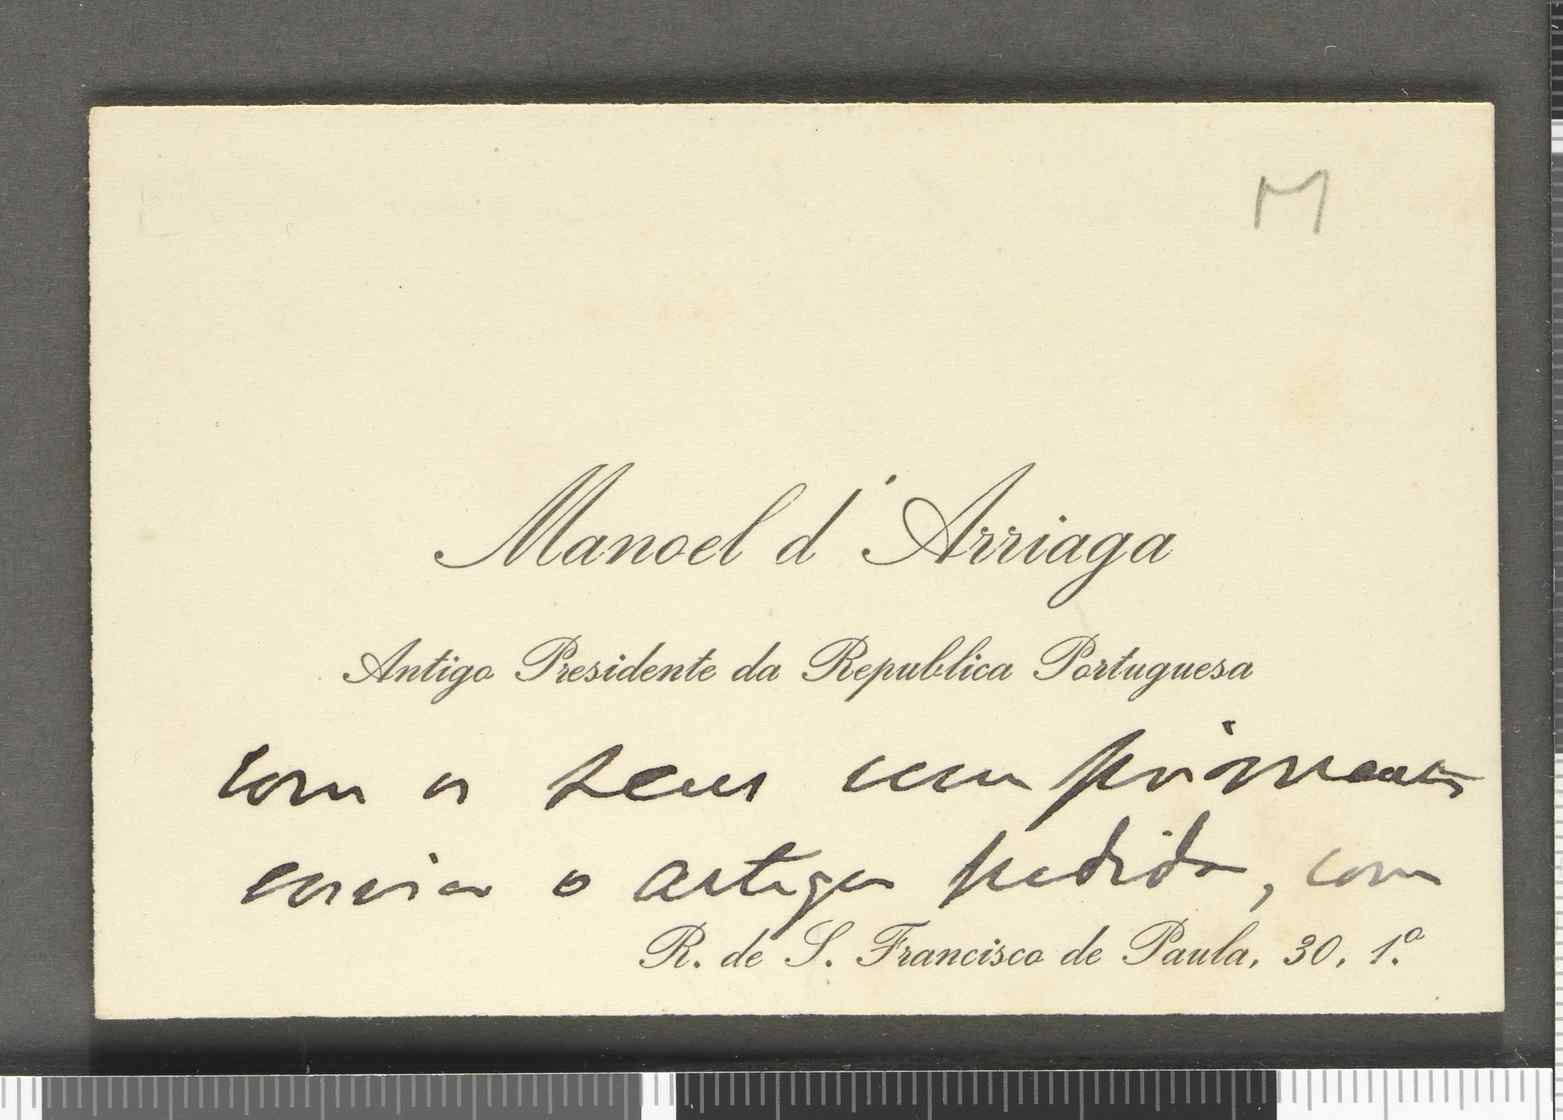 M
Manoel d'Arriaga
Antigo Presidente da Republica Portuguesa
com os seus cumprimentos
envia o artigo pedido, com
R. de S. Francisco de Paula, 30, 1.º